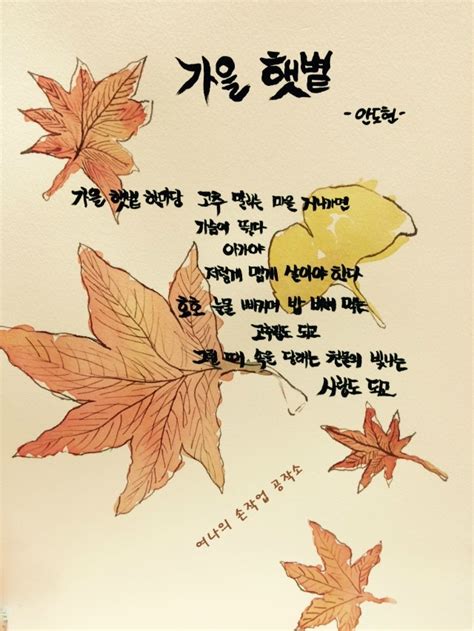 가을 햇볕
-안도현-
가을 햇볕 한마당 고추 말리는 마을 지나가면
가슴이 뛴다
아가야
저렇게 맵게 살아야 한다
호호 눈물 빠지며 밥 비벼 먹는
고추장도 되고
그럴 때 속을 달래는 찬물의 빛나는
사랑도 되고
여나의 손작업 공작소